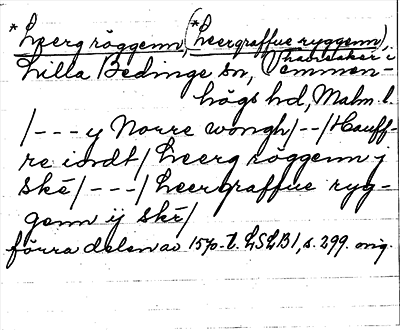 *Leerg röggenn, (*Leergraffue ryggenn),
Lilla Bedinge sn, Vemmen-
högs hd, Malm. l.
/---y Norre wongh/--/Hauff-
re iordt/ Leerg röggenn j
skē/---/Leergraffue ryg-
genn ij skē/
förra delen av 1570-t. LSLB1, s. 299. orig.